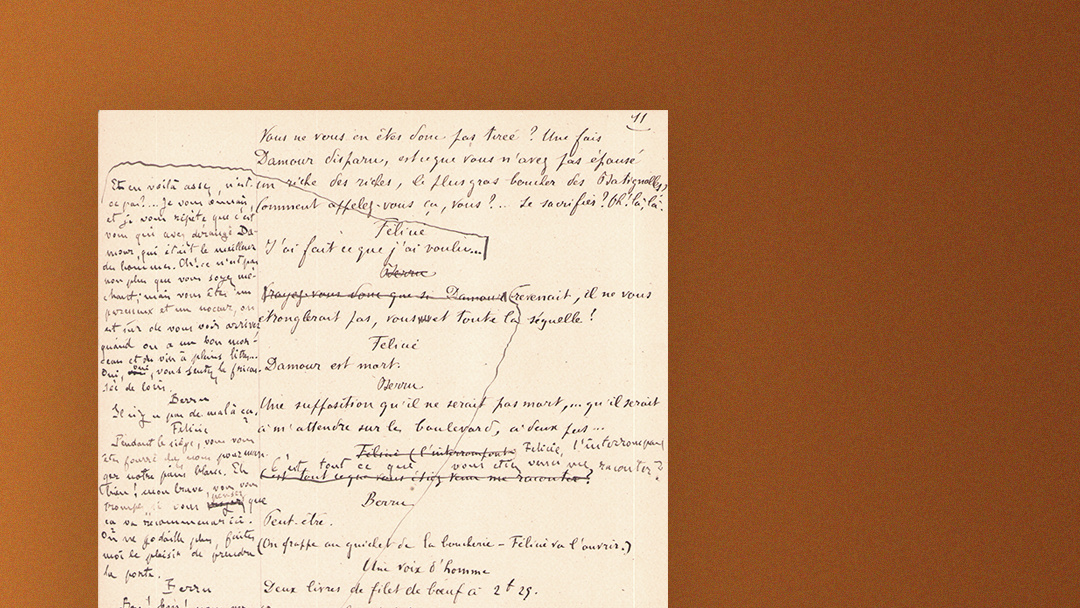 11
Vous ne vous en êtes donc pas tirée ? Une fois
Damour disparu, est-ce que vous n'avez pas épousé
un riche des riches, le plus gros boucher des Batignolles,
Comment appelez-vous ça, vous ?... Se sacrifier ? Oh ! là, là.
Félicie
J'ai fait ce que j'ai voulu...
Berru
Damour revenait, il ne vous
étranglerait pas, vous et toute la séquelle !
Félicie
Damour est mort.
Berru
Une supposition qu'il ne serait pas mort,... qu'il serait
à m'attendre sur le boulevard, à deux pas...
Félicie (l'interrompant Félicie, l'interrompant
C'est tout ce que vous êtes venu me raconter ?
c'est tout ce que vous étiez venu me raconter ?
Berru
Peut-être.
(On frappe au guichet de la boucherie – Félicie va l'ouvrir.)
Une voix d'homme
Deux livres de filet de bœuf à 2 f 25.
Et en voilà assez, n'est-
ce pas ?... Je vous connais,
et je vous répète que c'est
vous qui avez dérangé Da-
mour, qui était le meilleur
des hommes. Oh ! ce n'est pas
non plus que vous soyez mé-
chant ; mais vous êtes un
paresseux et un noceur, on
est sûr de vous voir arriver
quand on a un bon mor-
ceau et du vin à pleins litres.
Oui, oui, vous sentez la fricas-
sée de loin.
Berru
Il n'y a pas de mal à ça.
Félicie
Pendant le siège, vous vous
êtes fourré chez nous pour man-
ger notre pain blanc. Eh
bien ! mon brave, vous vous
trompez si vous pensez que
ça va recommencer ici.
On ne godaille plus, faites
moi le plaisir de prendre
la porte.
Berru